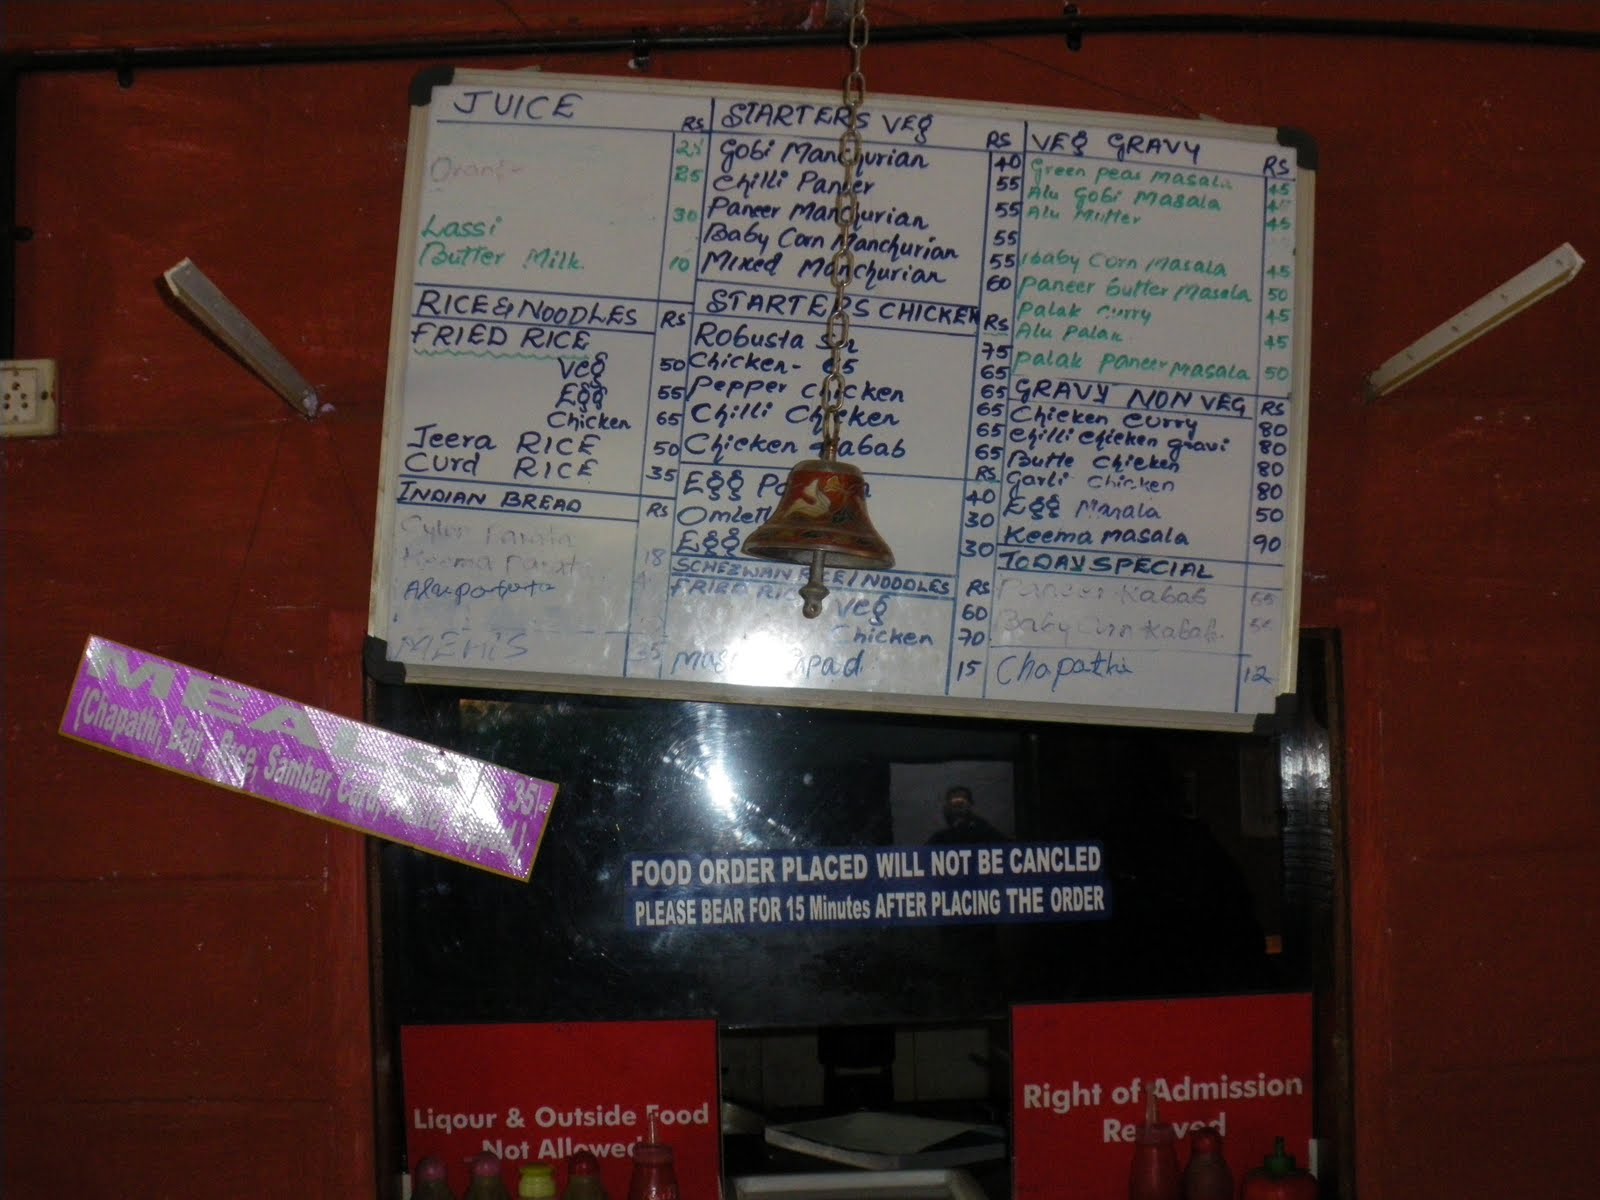 JUICE RS
25
Orange 25
Lassi 30
Butter Milk 10
RICE & NOODLES RS
FRIED RICE
Veg 50
Egg 55
Chicken 65
Jeera RICE 50
Curd RICE 35
INDIAN BREAD RS
18
Keema
35
STARTERS VEg RS
Gobi Manchurian 40
Chilli Paneer 55
Paneer Manchurian 55
Baby Corn Manchurian 55
Mixed Manchurian 55
60
STARTERS CHICKEN RS
Robusta 75
Chicken- 65 65
Pepper Chicken 65
Chilli Chicken 65
Chicken Kabab 65
65
RS
Egg 40
Omlett 30
Egg 30
SCHEZWAN RICE/NOODLES RS
FRIED RIC
Veg 60
Chicken 70
15
VEG GRAVY RS
Green peas Masala 45
Alu Gobi Masala
Alu Mutter 45
Baby Corn Masala 45
Paneer Butter Masala 50
Palak Curry 45
Alu Palak 45
Palak Paneer Masala 50
GRAVY NON VEG RS
Chicken Curry 80
Chilli Chicken gravi 80
Butte Chicken 80
Garli Chicken 80
Egg Masala 50
Keema Masala 90
TODAY SPECIAL
Paneer Kabab 55
Baby Corn Kabab
Chapathi 12
MEALS 35/-
(Chapathi, Baji, Rice, Sambar,
FOOD ORDER PLACED WILL NOT BE CANCLED
PLEASE BEAR FOR 15 Minutes AFTER PLACING THE ORDER
Liqour & Outside Food
Not Allowed
Right of Admission